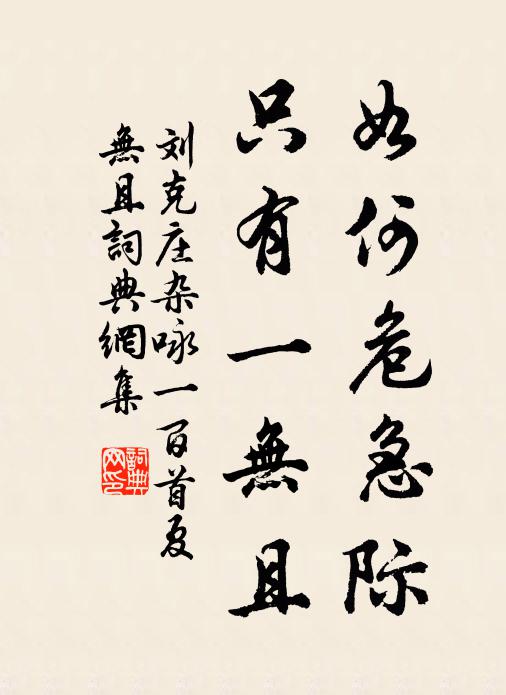 如何危急际
只有一無且
刘克庄杂咏一百首夏
無且詞典網集
詞典網印